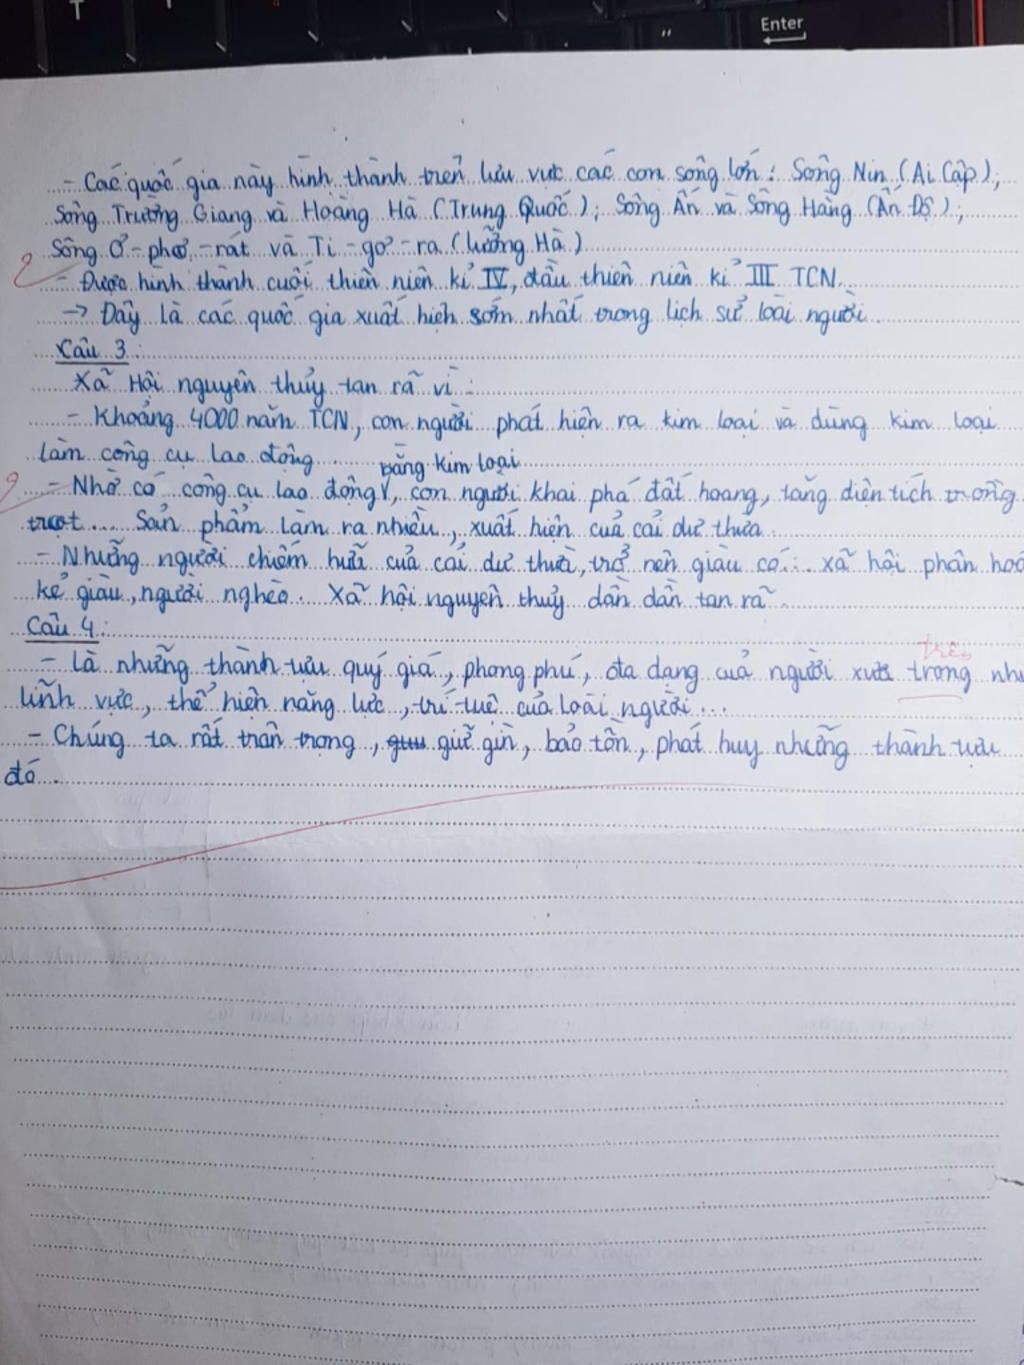 Enter
- Các quốc gia này hình thành trên lưu vực các con sông lớn: Sông Nin (Ai Cập);
Sông Trường Giang và Hoàng Hà (Trung Quốc); Sông Ấn và Sông Hằng (Ấn Độ);
Sông Ơ-phơ-rát và Ti-gơ-rơ (Lưỡng Hà)
- Được hình thành cuối thiên niên kỉ IV, đầu thiên niên kỉ III TCN.
→ Đây là các quốc gia xuất hiện sớm nhất trong lịch sử loài người.
Câu 3:
Xã Hội nguyên thủy tan rã vì:
- Khoảng 4000 năm TCN, con người phát hiện ra kim loại và dùng kim loại
làm công cụ lao động
bằng kim loại
- Nhờ có công cụ lao động, con người khai phá đất hoang, tăng diện tích trồng
trọt... Sản phẩm làm ra nhiều, xuất hiện của cải dư thừa.
- Những người chiếm hữu của cải dư thừa, trở nên giàu có... xã hội phân hoá
kẻ giàu, người nghèo. Xã hội nguyên thuỷ dần dần tan rã.
Câu 4:
trên
- Là những thành tựu quý giá, phong phú, đa dạng của người xưa trong
lĩnh vực, thể hiện năng lực, trí tuệ của loài người...
- Chúng ta rất trân trọng, giữ gìn, bảo tồn, phát huy những thành tựu
đó.